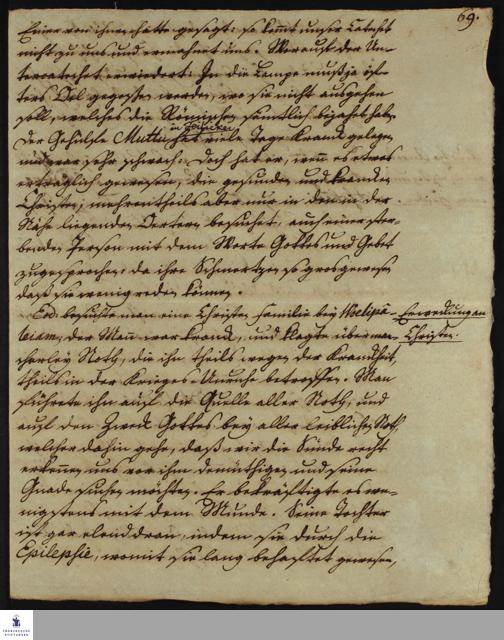 69.
Einer von ihnen hatte gesagt: so kommt unser Catechet
nicht zu uns und ermahnet uns. Worauf der Un-
tercatechet erwiedert: In die Lampe muß ja öf-
ters Oel gegossen werden, wo sie nicht ausgehen
soll, welches die Römischen sämtlich bejahet haben.
Der Gehülfe Muttu in hat viele Tage kranck gelegen
und war sehr schwach: Doch hat er, wenn es etwas
erträglich gewesen, die gesunden und krancken
Christen, mehrentheils aber nur in den in der
Nähe liegenden Oertern besuchet, auch einer ster-
benden Person mit dem Worte Gottes und Gebet
zugesprochen: da ihre Schmertzen so gros gewesen
daß sie wenig reden können.
Eod: besuchte man eine Christen Familie bey Woelipa-
leiam, der Mann war kranck, und klagte über man-
cherley Noth, die ihn theils wegen der Kranckheit,
theils in der Krieges-Unruhe betroffen. Man
führete ihn auf die Quelle aller Noth, und
auf den Zweck Gottes bey aller leiblichen Noth,
welcher dahin gehe, daß wir die Sünde recht
erkennen uns vor ihm demüthigen und seine
Gnade suchen möchten. Er bekräftigte es we-
nigstens mit dem Munde. Seine Tochter
ist gar elend dran, indem sie durch die
Epilepsie, womit sie lang behafftet gewesen,
Erweckung an
Christen.
FRANCKESCHE
STIFTUNGEN